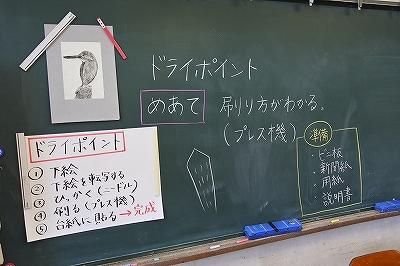 ドライポイント
めあて 刷り方がわかる。
(プレス機)
準備
・ビニ板
・新聞紙
・用紙
・説明書
ドライポイント
① 下絵
② 下絵を転写する
③ ひっかく(ニードル)
④ 刷る(プレス機)
⑤ 台紙に貼る→完成